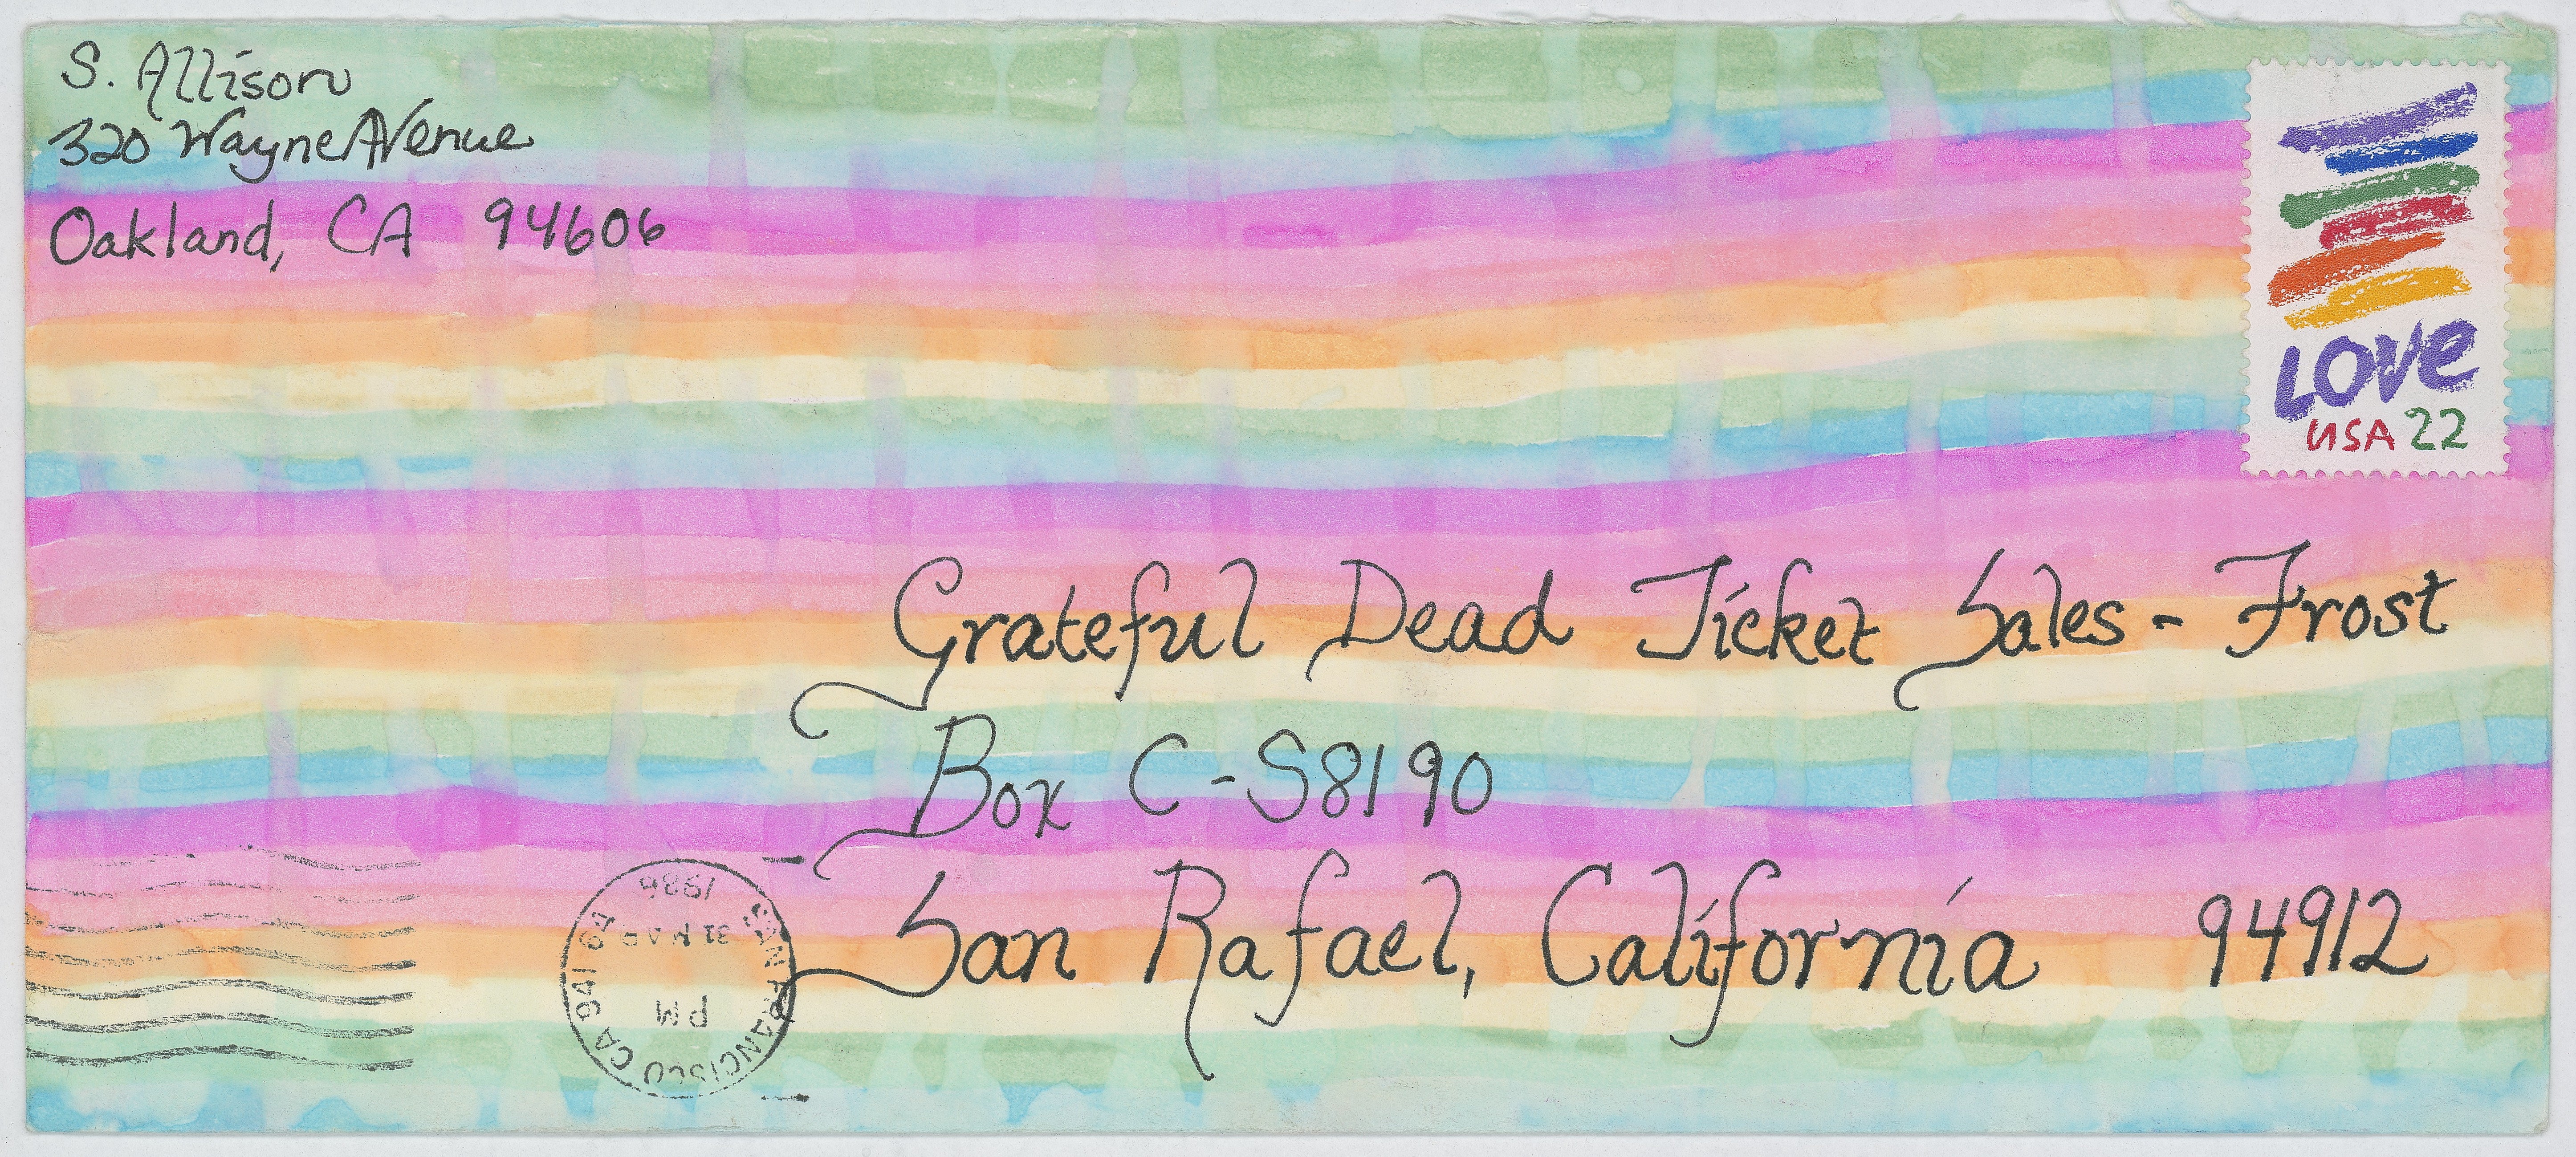 S. Allison
320 Wayne Avenue
Oakland, CA 94606
LOVE
USA 22
Grateful Dead Ticket Sales - Frost
Box C-S8190
San Rafael, California 94912
SAN FRANCISCO CA 941
PM
31 MAR
1986